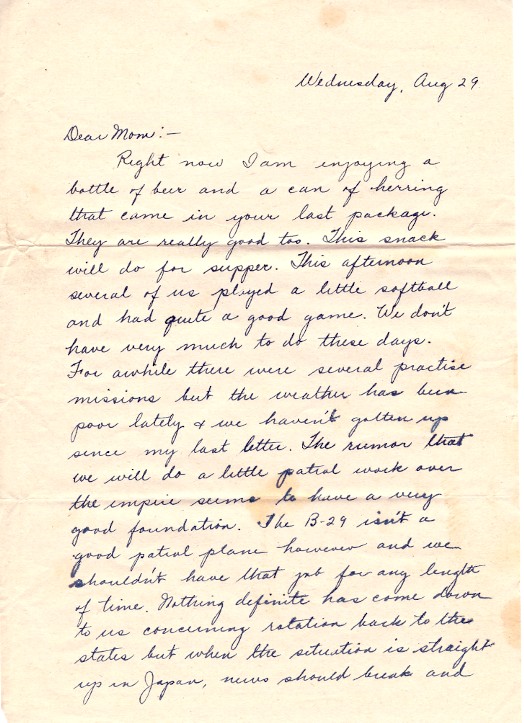 Wednesday, Aug 29
Dear Mom:—
Right now I am enjoying a
bottle of beer and a can of herring
that came in your last package.
They are really good too. This snack
will do for supper. This afternoon
several of us played a little softball
and had quite a good game. We don't
have very much to do these days.
For awhile there were several practise
missions but the weather has been
poor lately & we haven't gotten up
since my last letter. The rumor that
we will do a little patrol work over
the empire seems to have a very
good foundation. The B-29 isn't a
good patrol plane however and we
shouldn't have that job for any length
of time. Nothing definite has come down
to us concerning rotation back to the
states but when the situation is straight
up in Japan, news should break and